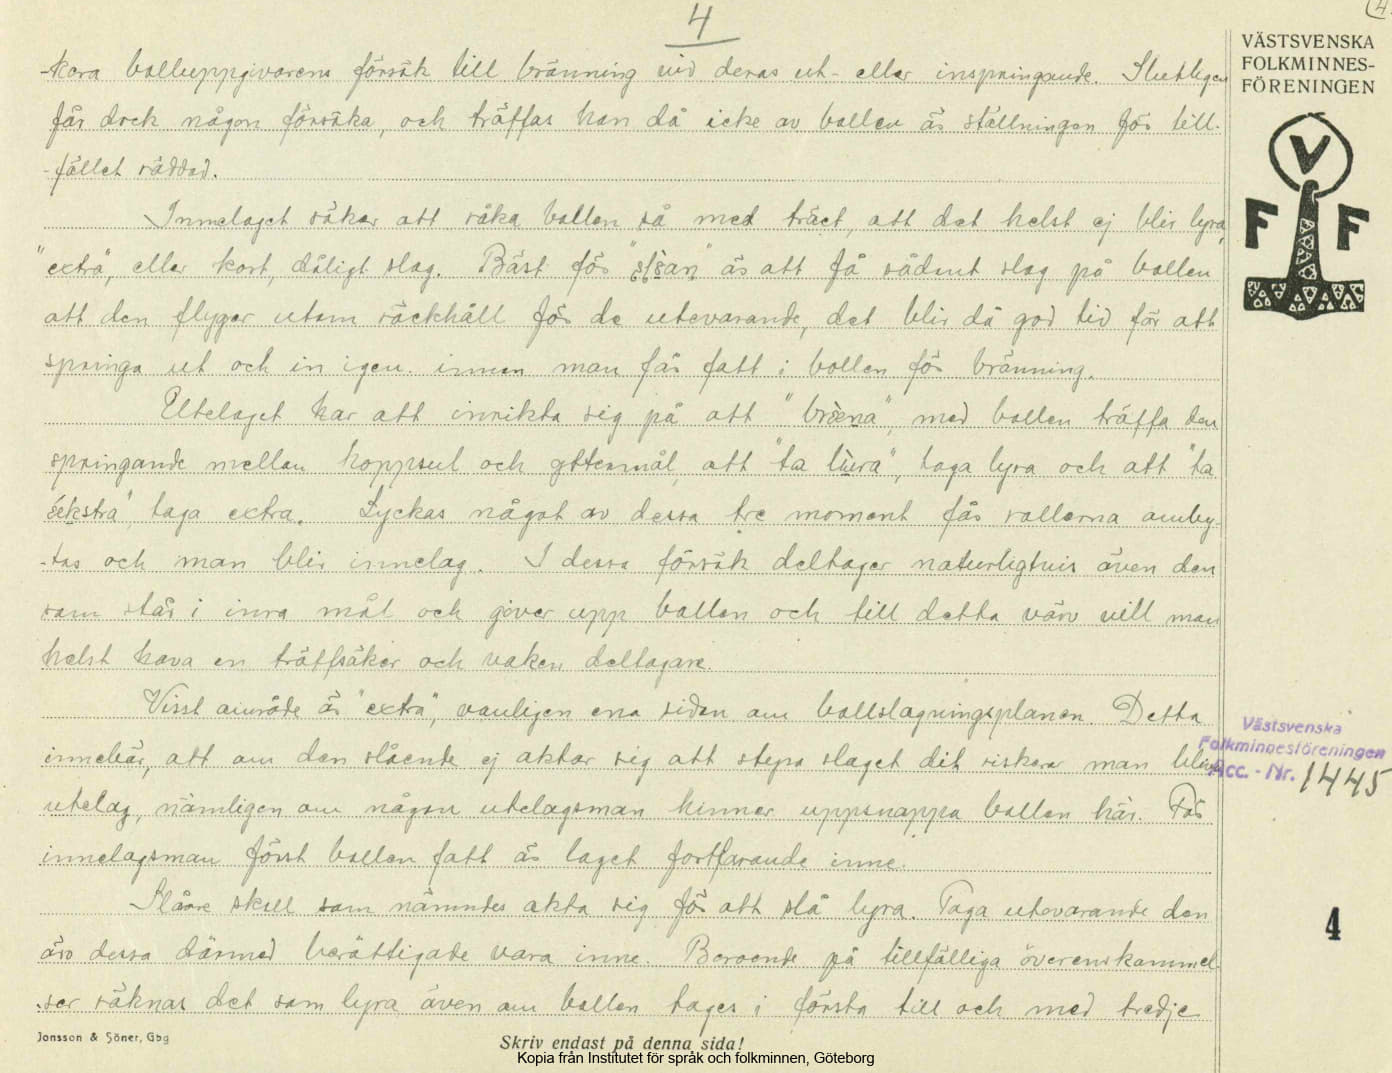 4
VÄSTSVENSKA
FOLKMINNES-
FÖRENINGEN
V
F F
-kara bolluppgivarens försök till bränning vid deras ut- eller inspringande. Slutligen
får dock någon försöka, och träffas han då icke av bollen är ställningen för till-
-fället räddad.
Innelaget söker att råka bollen så med träet, att det helst ej blir lyra,
"extra", eller kort, dåligt slag. Bäst för är att få sådant slag på bollen
att den flyger utom räckhåll för de utevarande, det blir då god tid för att
springa ut och in igen innan man får fatt i bollen för bränning.
Utelaget har att inrikta sig på att "bræna", med bollen träffa den
springande mellan hoppsul och yttermål, att "ta lùra", taga lyra och att "ta
èkstra", taga extra. Lyckas något av dessa tre moment får rollerna omby-
-tas och man blir innelag. I dessa försök deltager naturligtvis även den
som står i inra mål och giver upp bollen och till detta värv vill man
helst hava en träffsäker och vaken deltagare.
Visst område är "extra", vanligen ena sidan om bollslagningsplanen. Detta
innebär, att om den slående ej aktar sig att styra slaget dit riskera man bliva
utelag, nämligen om någon utelagsman hinner uppsnappa bollen här. Får
innelagsman först bollen fatt är laget fortfarande inne.
Slåare skall som nämndes akta sig för att slå lyra. Taga utevarande den
äro dessa därmed berättigade vara inne. Beroende på tillfälliga överenskommel-
-ser räknas det som lyra även om bollen tages i första till och med tredje
Västsvenska
Folkminnesföreningen
Acc. - Nr. 1445
4
Jonsson & Söner, Gbg
Skriv endast på denna sida!
Kopia från Institutet för språk och folkminnen, Göteborg